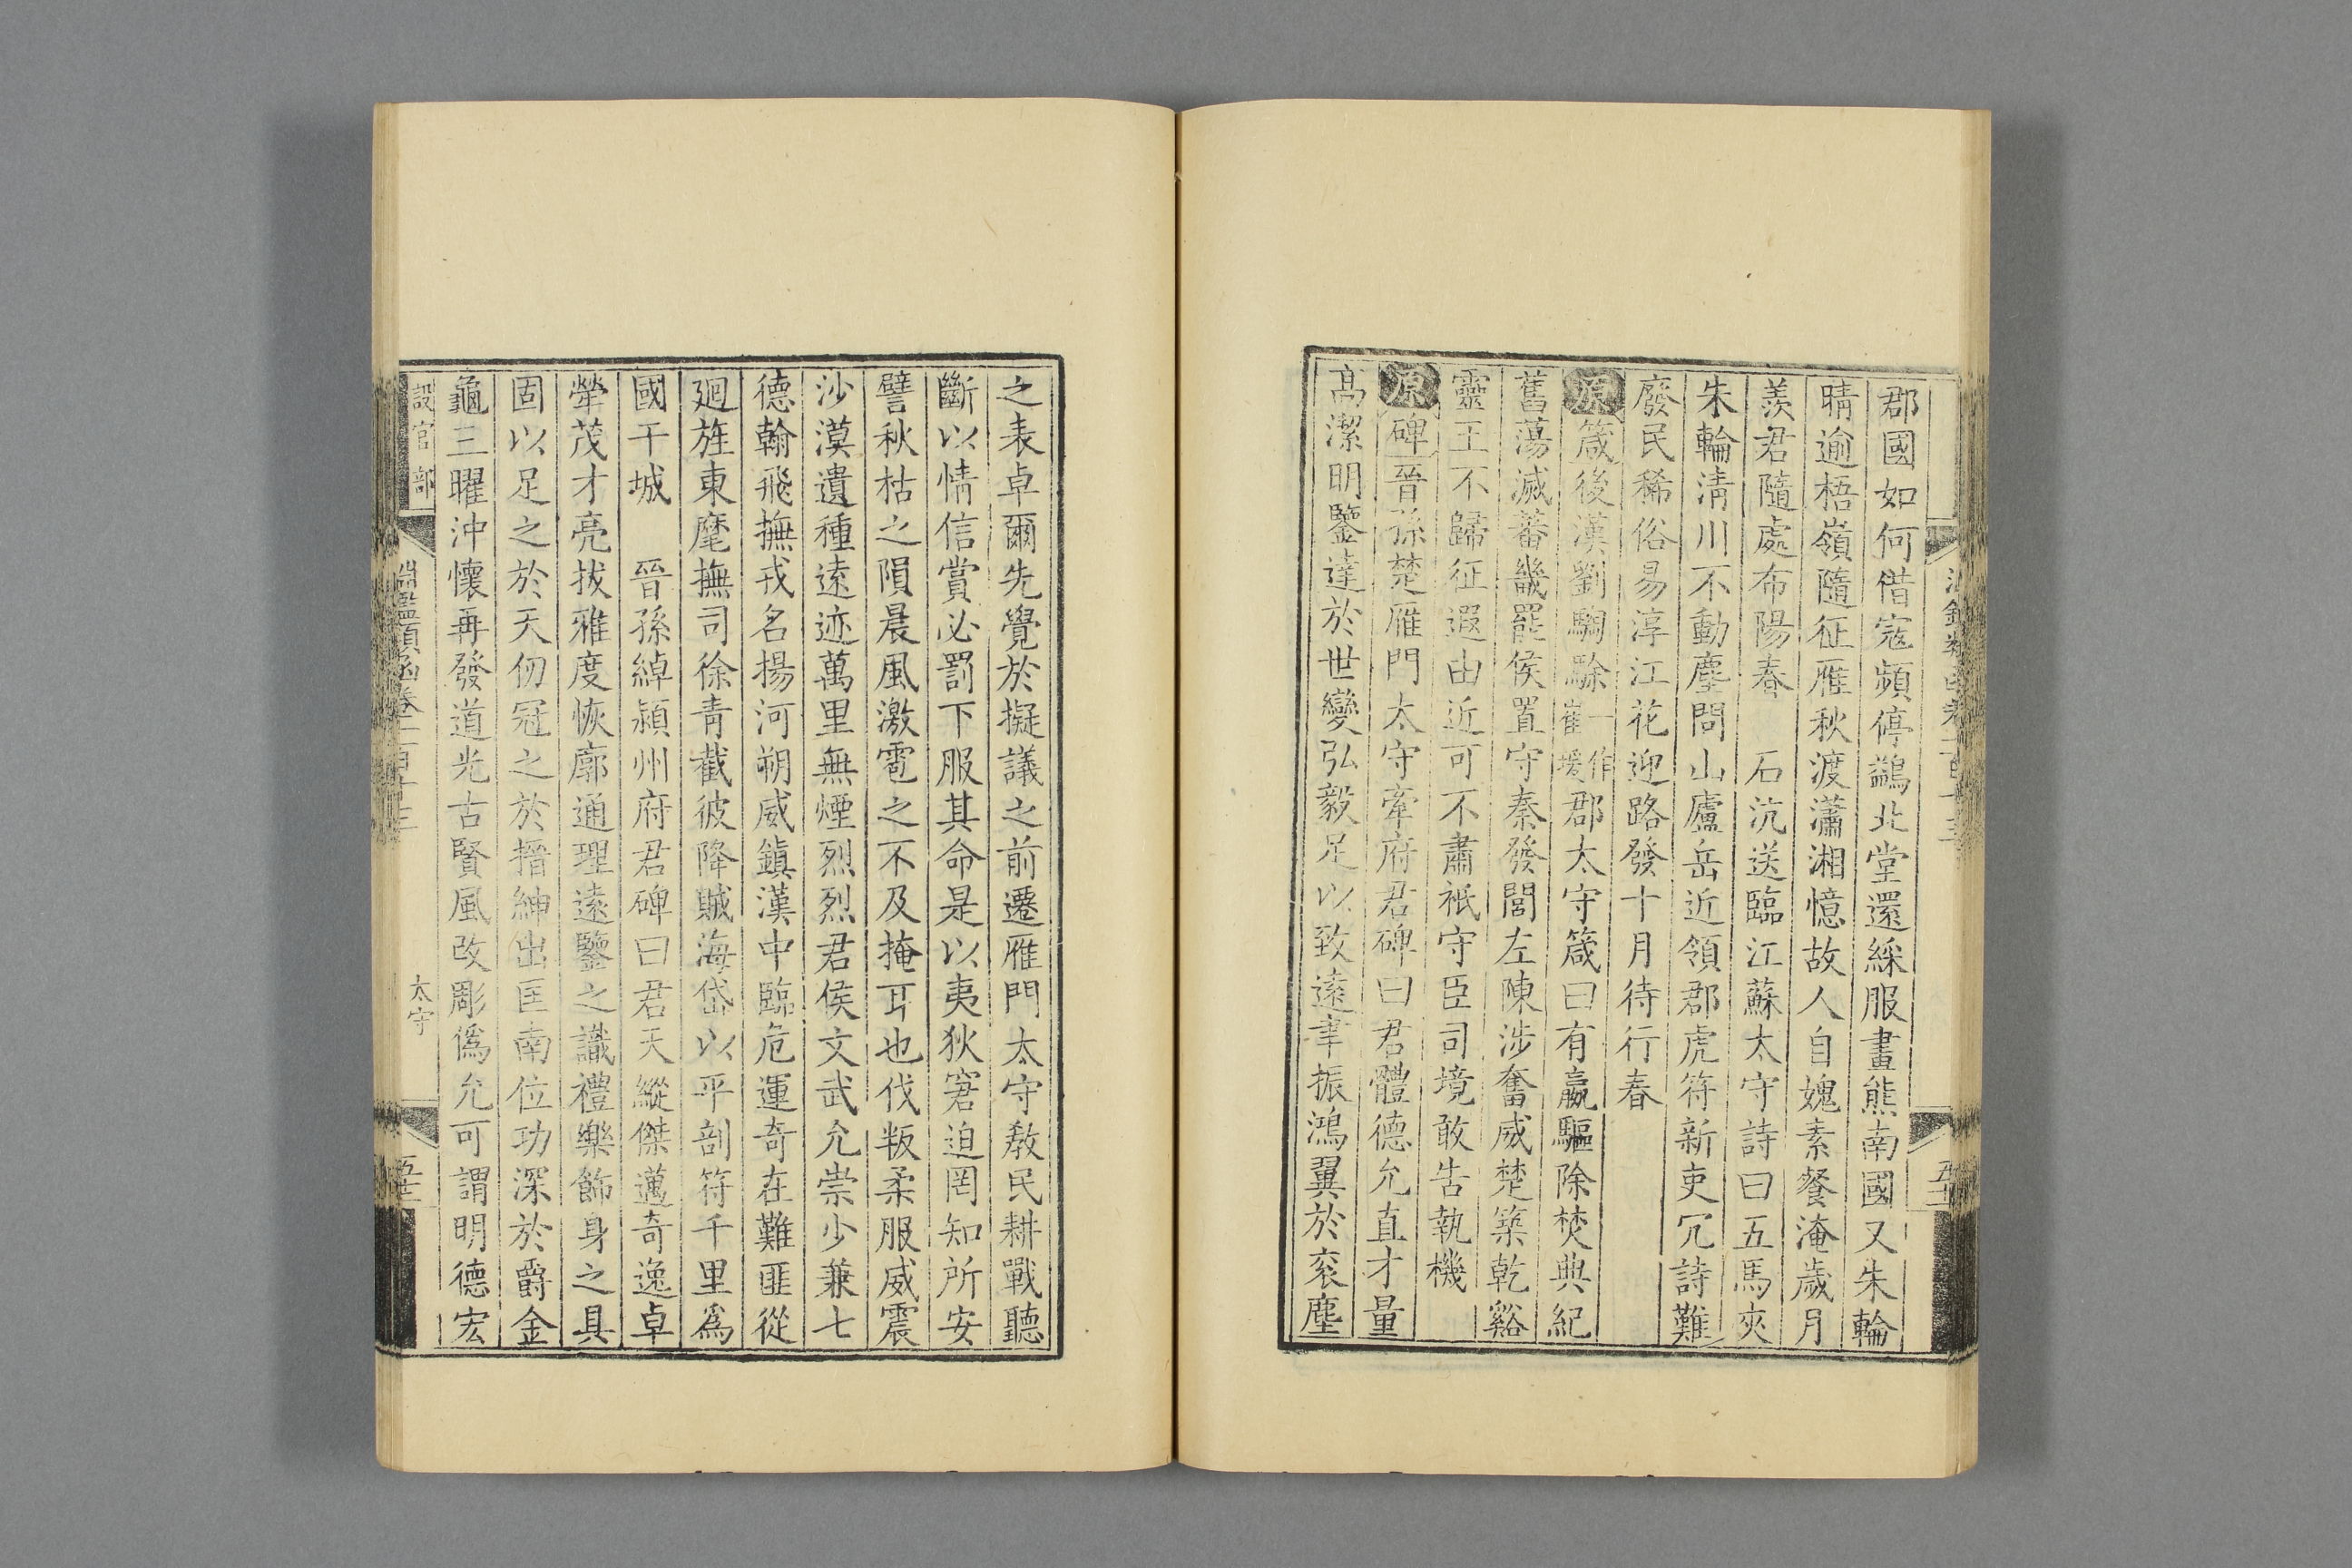 郡國如何借寇頻停鷁北堂還綵服畫熊南國又朱輪
晴逾梧嶺隨征雁秋渡瀟湘憶故人自媿素餐淹歲月
羨君隨處布陽春　石沆送臨江蘇太守詩曰五馬夾
朱輪清川不動塵問山廬岳近領郡虎符新吏冗詩難
廢民稀俗易淳江花迎路發十月待行春
原箴後漢劉騊駼一作崔瑗郡太守箴曰有嬴驅除焚典紀
舊蕩滅蕃畿罷侯置守秦發閭左陳涉奮威楚築乾谿
靈王不歸征遐由近可不肅祇守臣司境敢告執機
原碑晉孫楚雁門太守牽府君碑曰君體德允直才量
高潔明鑒達於世變弘毅足以致遠聿振鴻翼於衮塵
之表卓爾先覺於擬議之前遷雁門太守教民耕戰聽
斷以情信賞必罰下服其命是以夷狄窘迫罔知所安
譬秋枯之隕晨風激雹之不及掩耳也伐叛柔服威震
沙漠遺種遠迹萬里無煙烈烈君侯文武允崇少兼七
德翰飛撫戎名揚河朔威鎮漢中臨危運奇在難匪從
廻旌東麾撫司徐青截彼降賊海岱以平剖符千里爲
國干城　晉孫綽潁州府君碑曰君天縱傑邁奇逸卓
犖茂才亮拔雅度恢廓通理遠鑒之識禮樂飾身之具
固以足之於天仞冠之於搢紳出匡南位功深於爵金
龜三曜沖懷再發道光古賢風改彫僞允可謂明德宏
設官部
淵鑑類函卷一百十三
太守